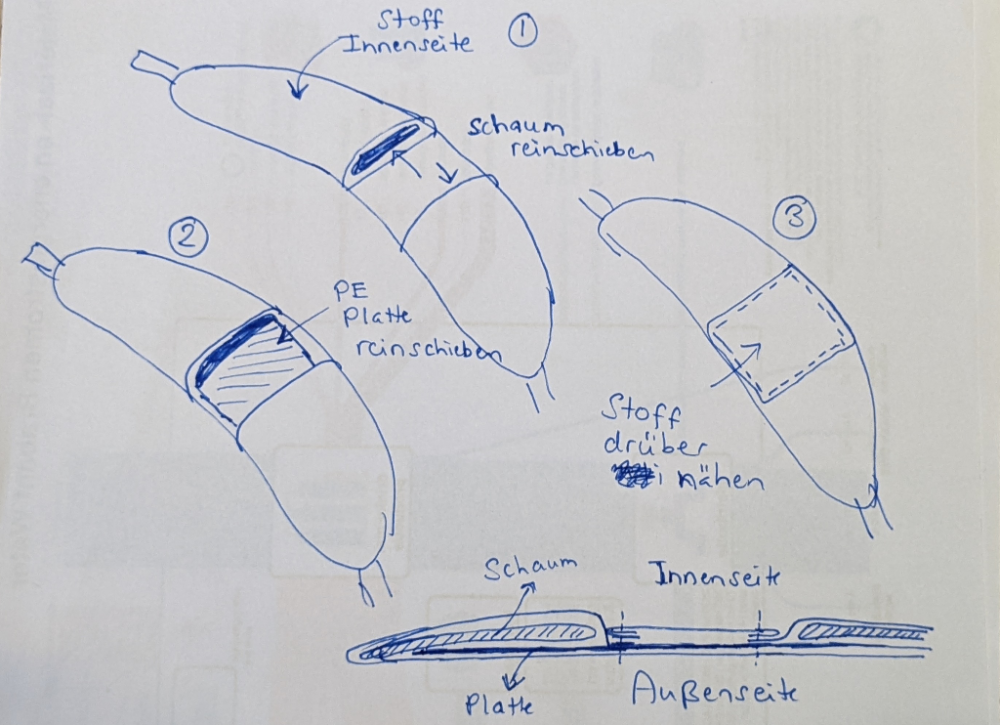 Stoff
Innenseite
1
Schaum
reinschieben
2
PE
Platte
reinschieben
3
Stoff
drüber
nähen
Schaum
Innenseite
Platte
Außenseite